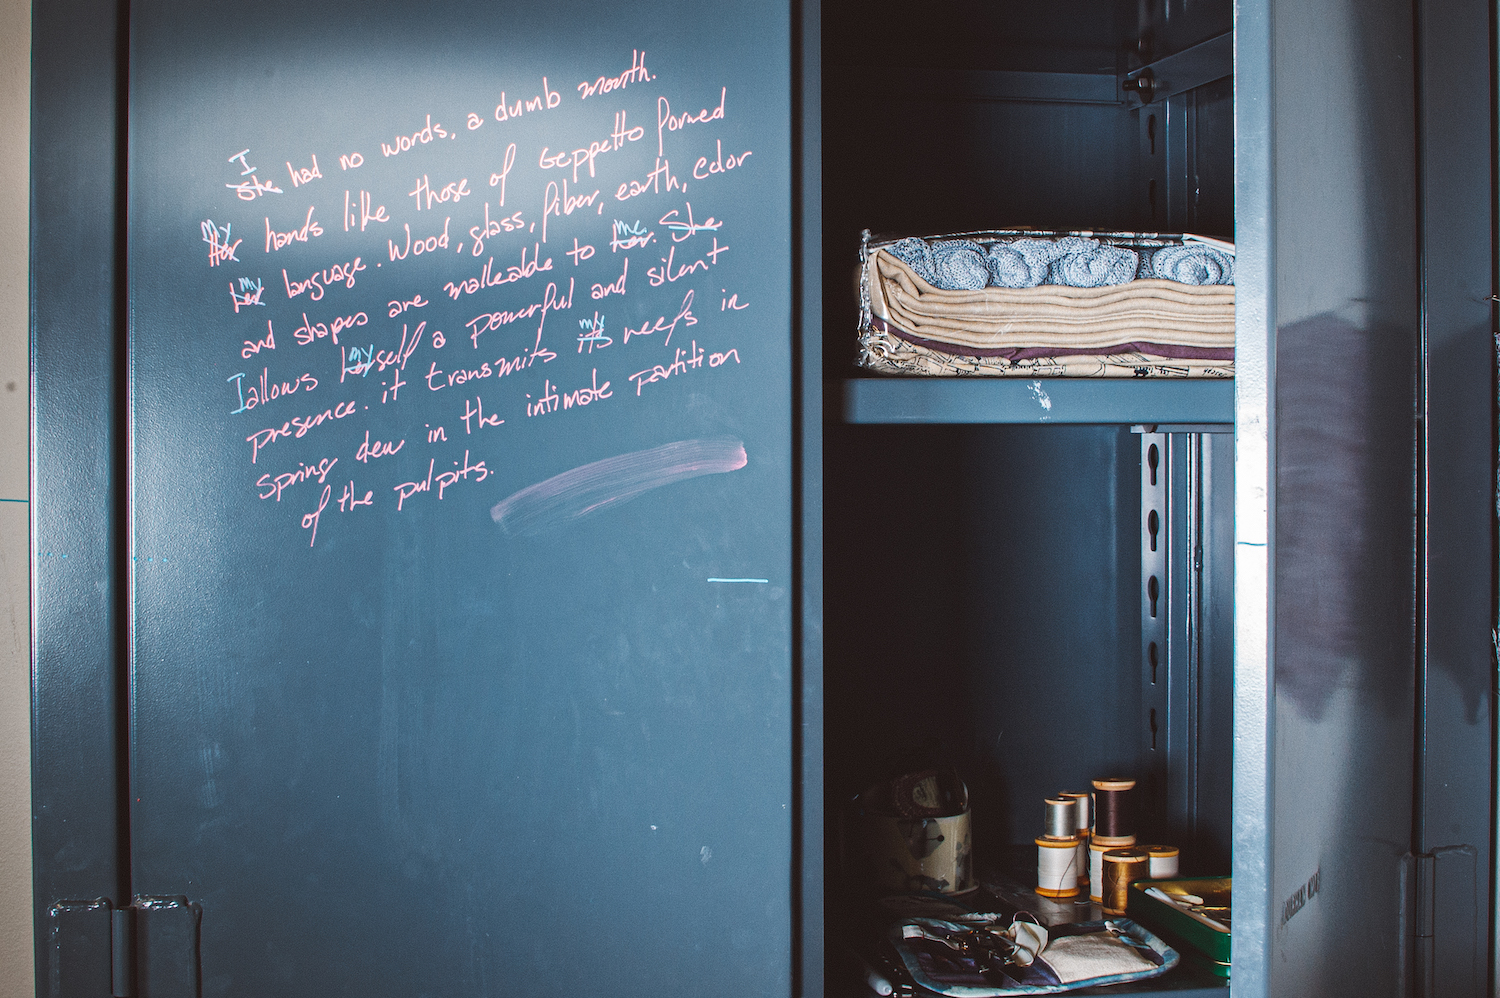 I
She had no words, a dumb mouth.
my
Her hands like those of Geppetto formed
my
her language. Wood, glass, fiber, earth, color
me
and shapes are malleable to her. She
my
I allows herself a powerful and silent
my
presence. it transmits its in
Spring dew in the intimate partition
of the pulpits.